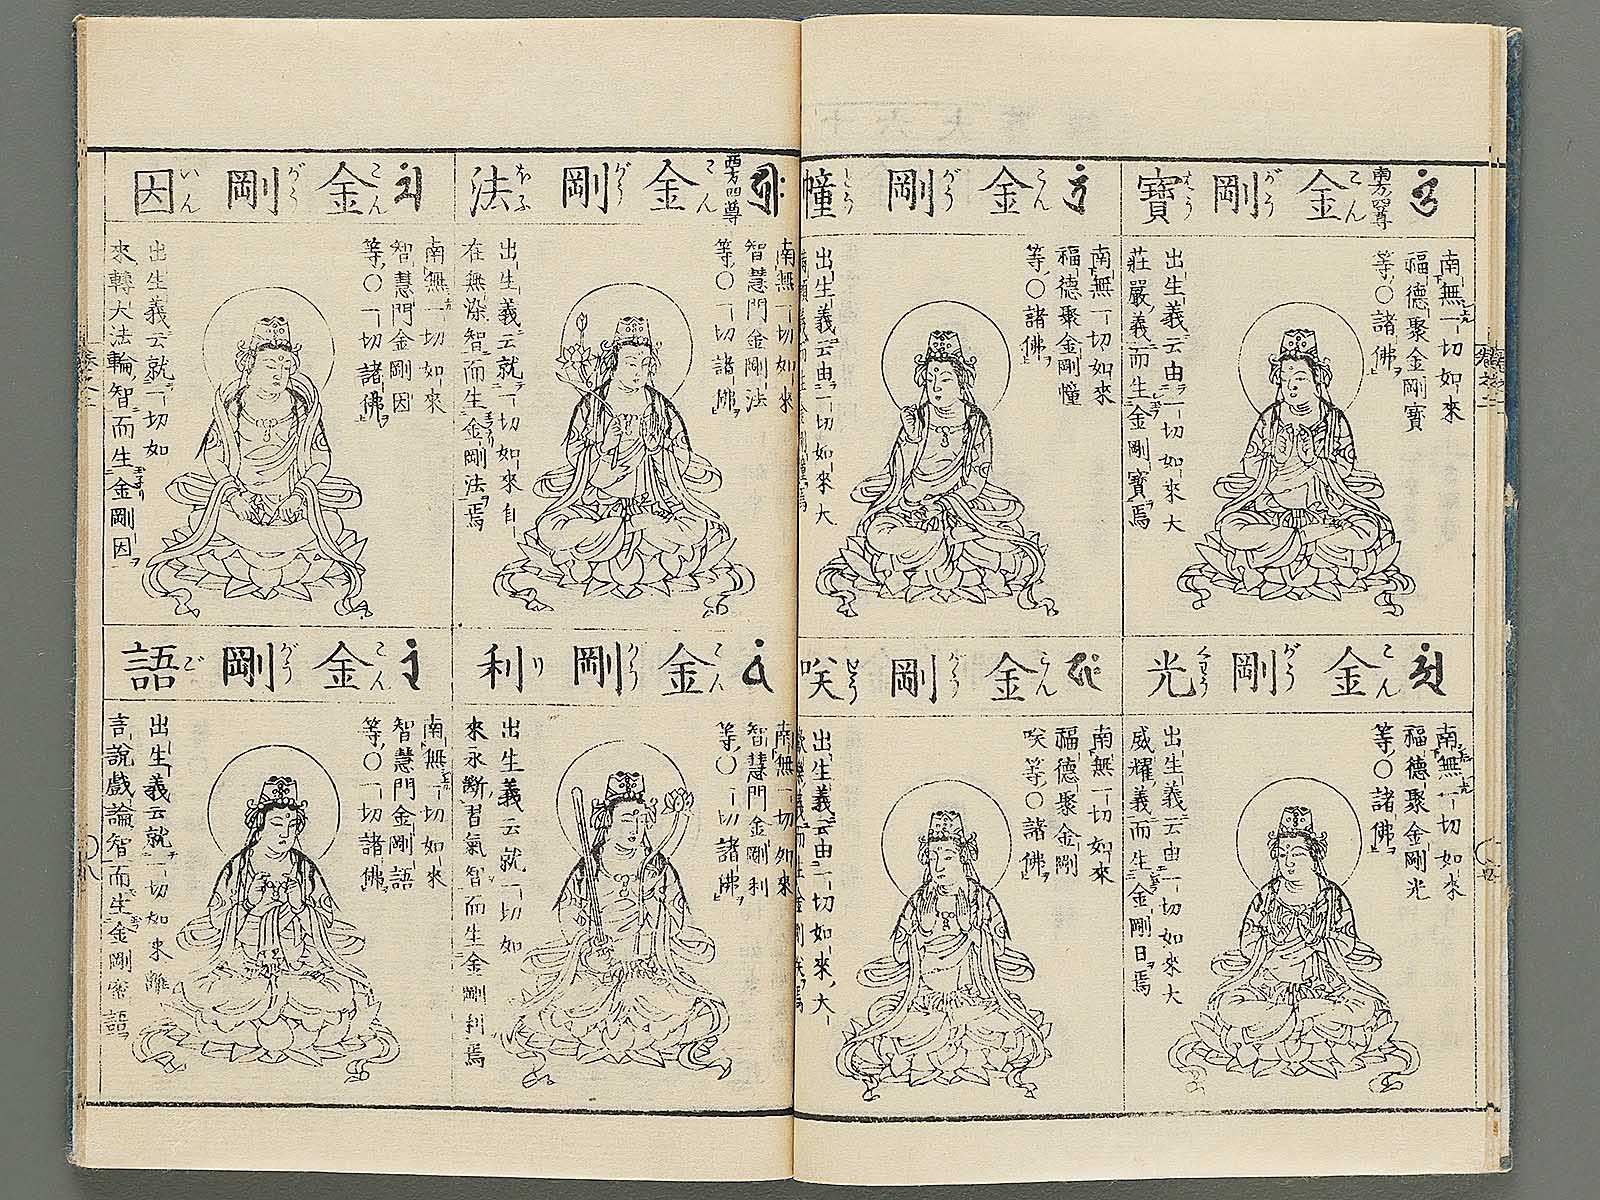 南方四尊
金剛寶
こんがうはう
南無一切如來
福德聚金剛寶
等○諸佛
出生義云由一切如來大
莊嚴義而生金剛寶焉
金剛光
こんがうくわう
南無一切如來
福德聚金剛光
等○諸佛
出生義云由一切如來大
威耀義而生金剛日焉
金剛幢
こんがうとう
南無一切如來
福德聚金剛幢
等○諸佛
出生義云由一切如來大
金剛咲
こんがう
南無一切如來
福德聚金剛
咲等○諸佛
出生義云由一切如來大
西方四尊
金剛法
こんがうほふ
南無一切諸如來
智慧門金剛法
等○一切諸佛
出生義云就一切如來自
在無染智而生金剛法焉
金剛利
こんがうり
南無一切如來
智慧門金剛利
等○一切諸佛
出生義云就一切如
來永斷習氣智而生金剛利焉
金剛因
こんがういん
南無一切如來
智慧門金剛因
等○一切諸佛
出生義云就一切如
來轉大法輪智而生金剛因
金剛語
こんがうご
南無一切如來
智慧門金剛語
等○一切諸佛
出生義云就一切如來離
言說戲論智而生金剛密語